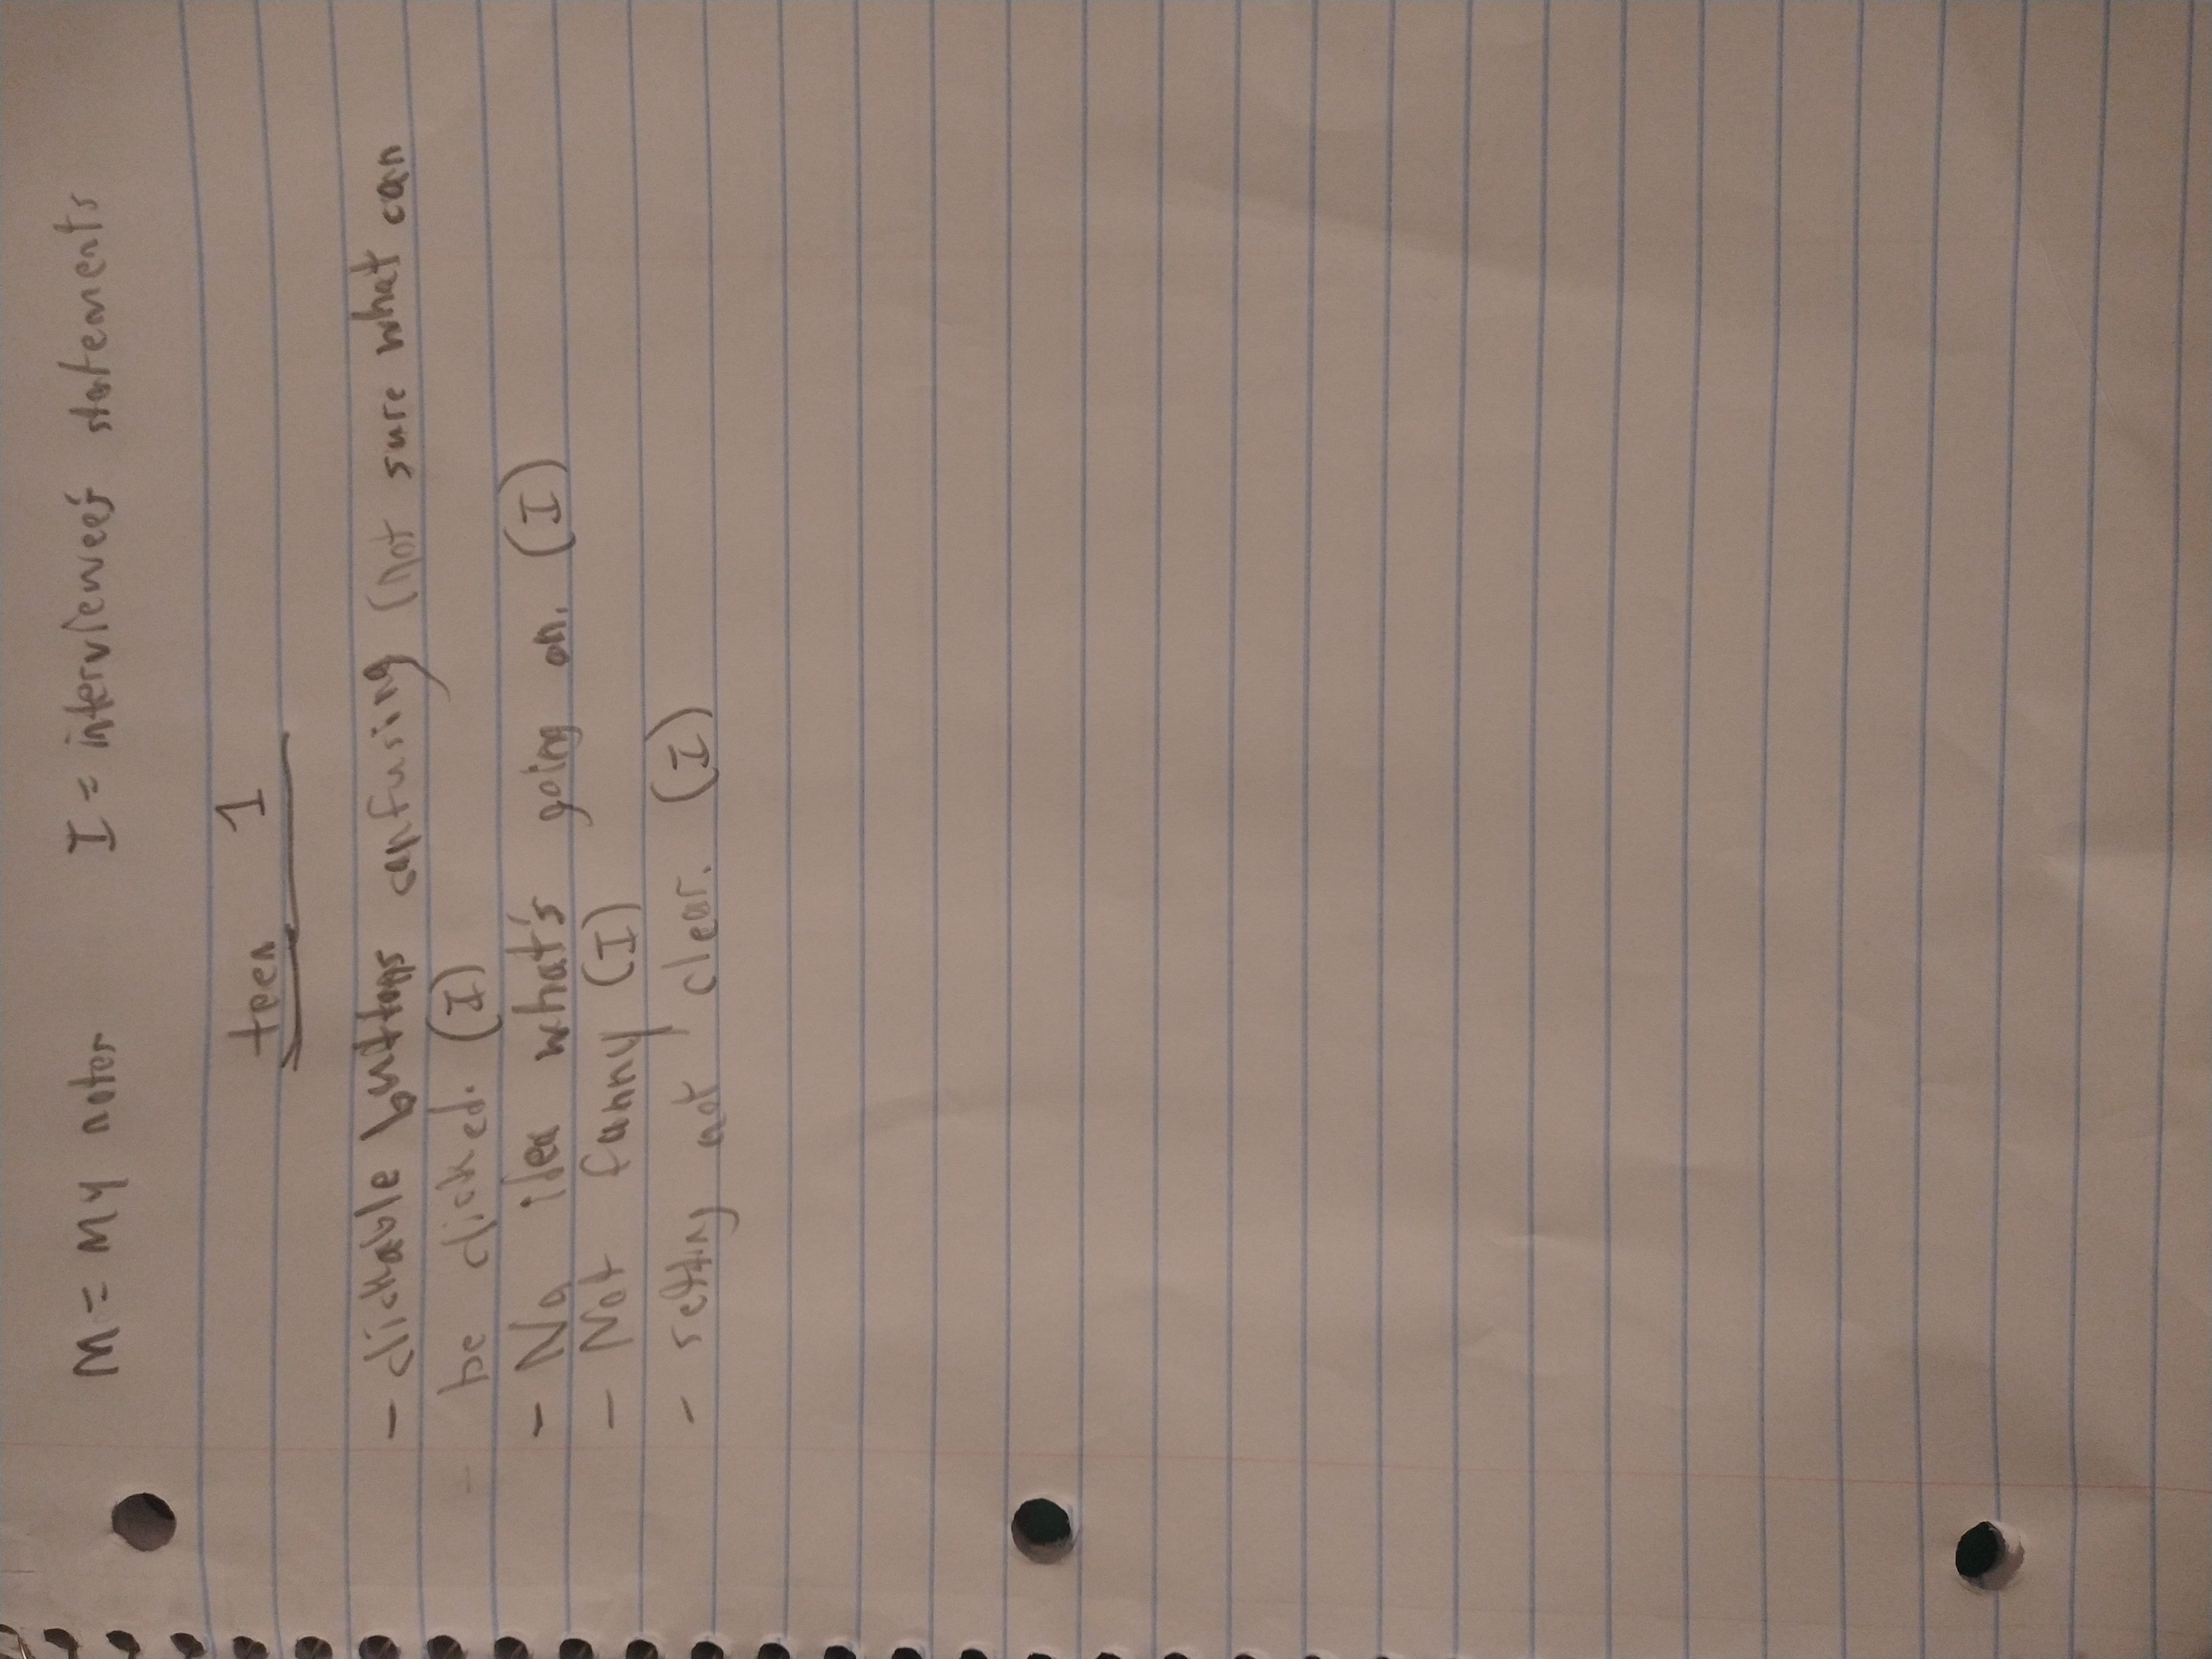 M = My notes I = interviewee's statements
teen 1
- clickable buttons confusing (not sure what can
be clicked. (I)
- No idea what's going on. (I)
- Not funny (I)
- setting not clear. (I)